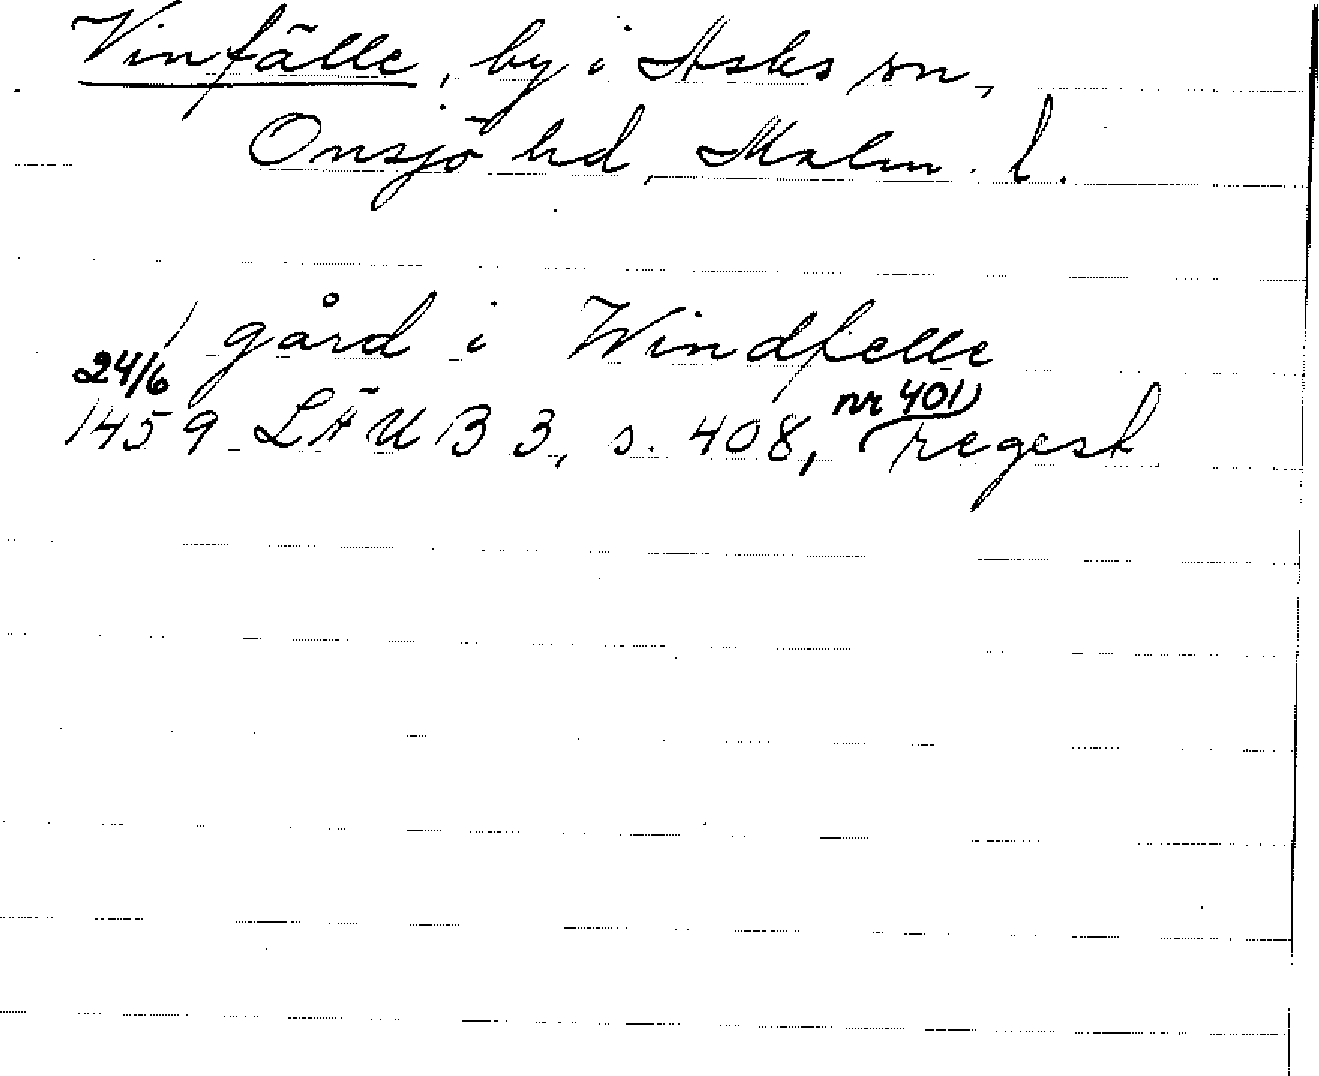 Vinfälle, by i Asks sn,
Onsjö hd, Malm. l.
1 gård i Windfelle
24/6
1459 LÄUB 3, s. 408, nr 401, regest